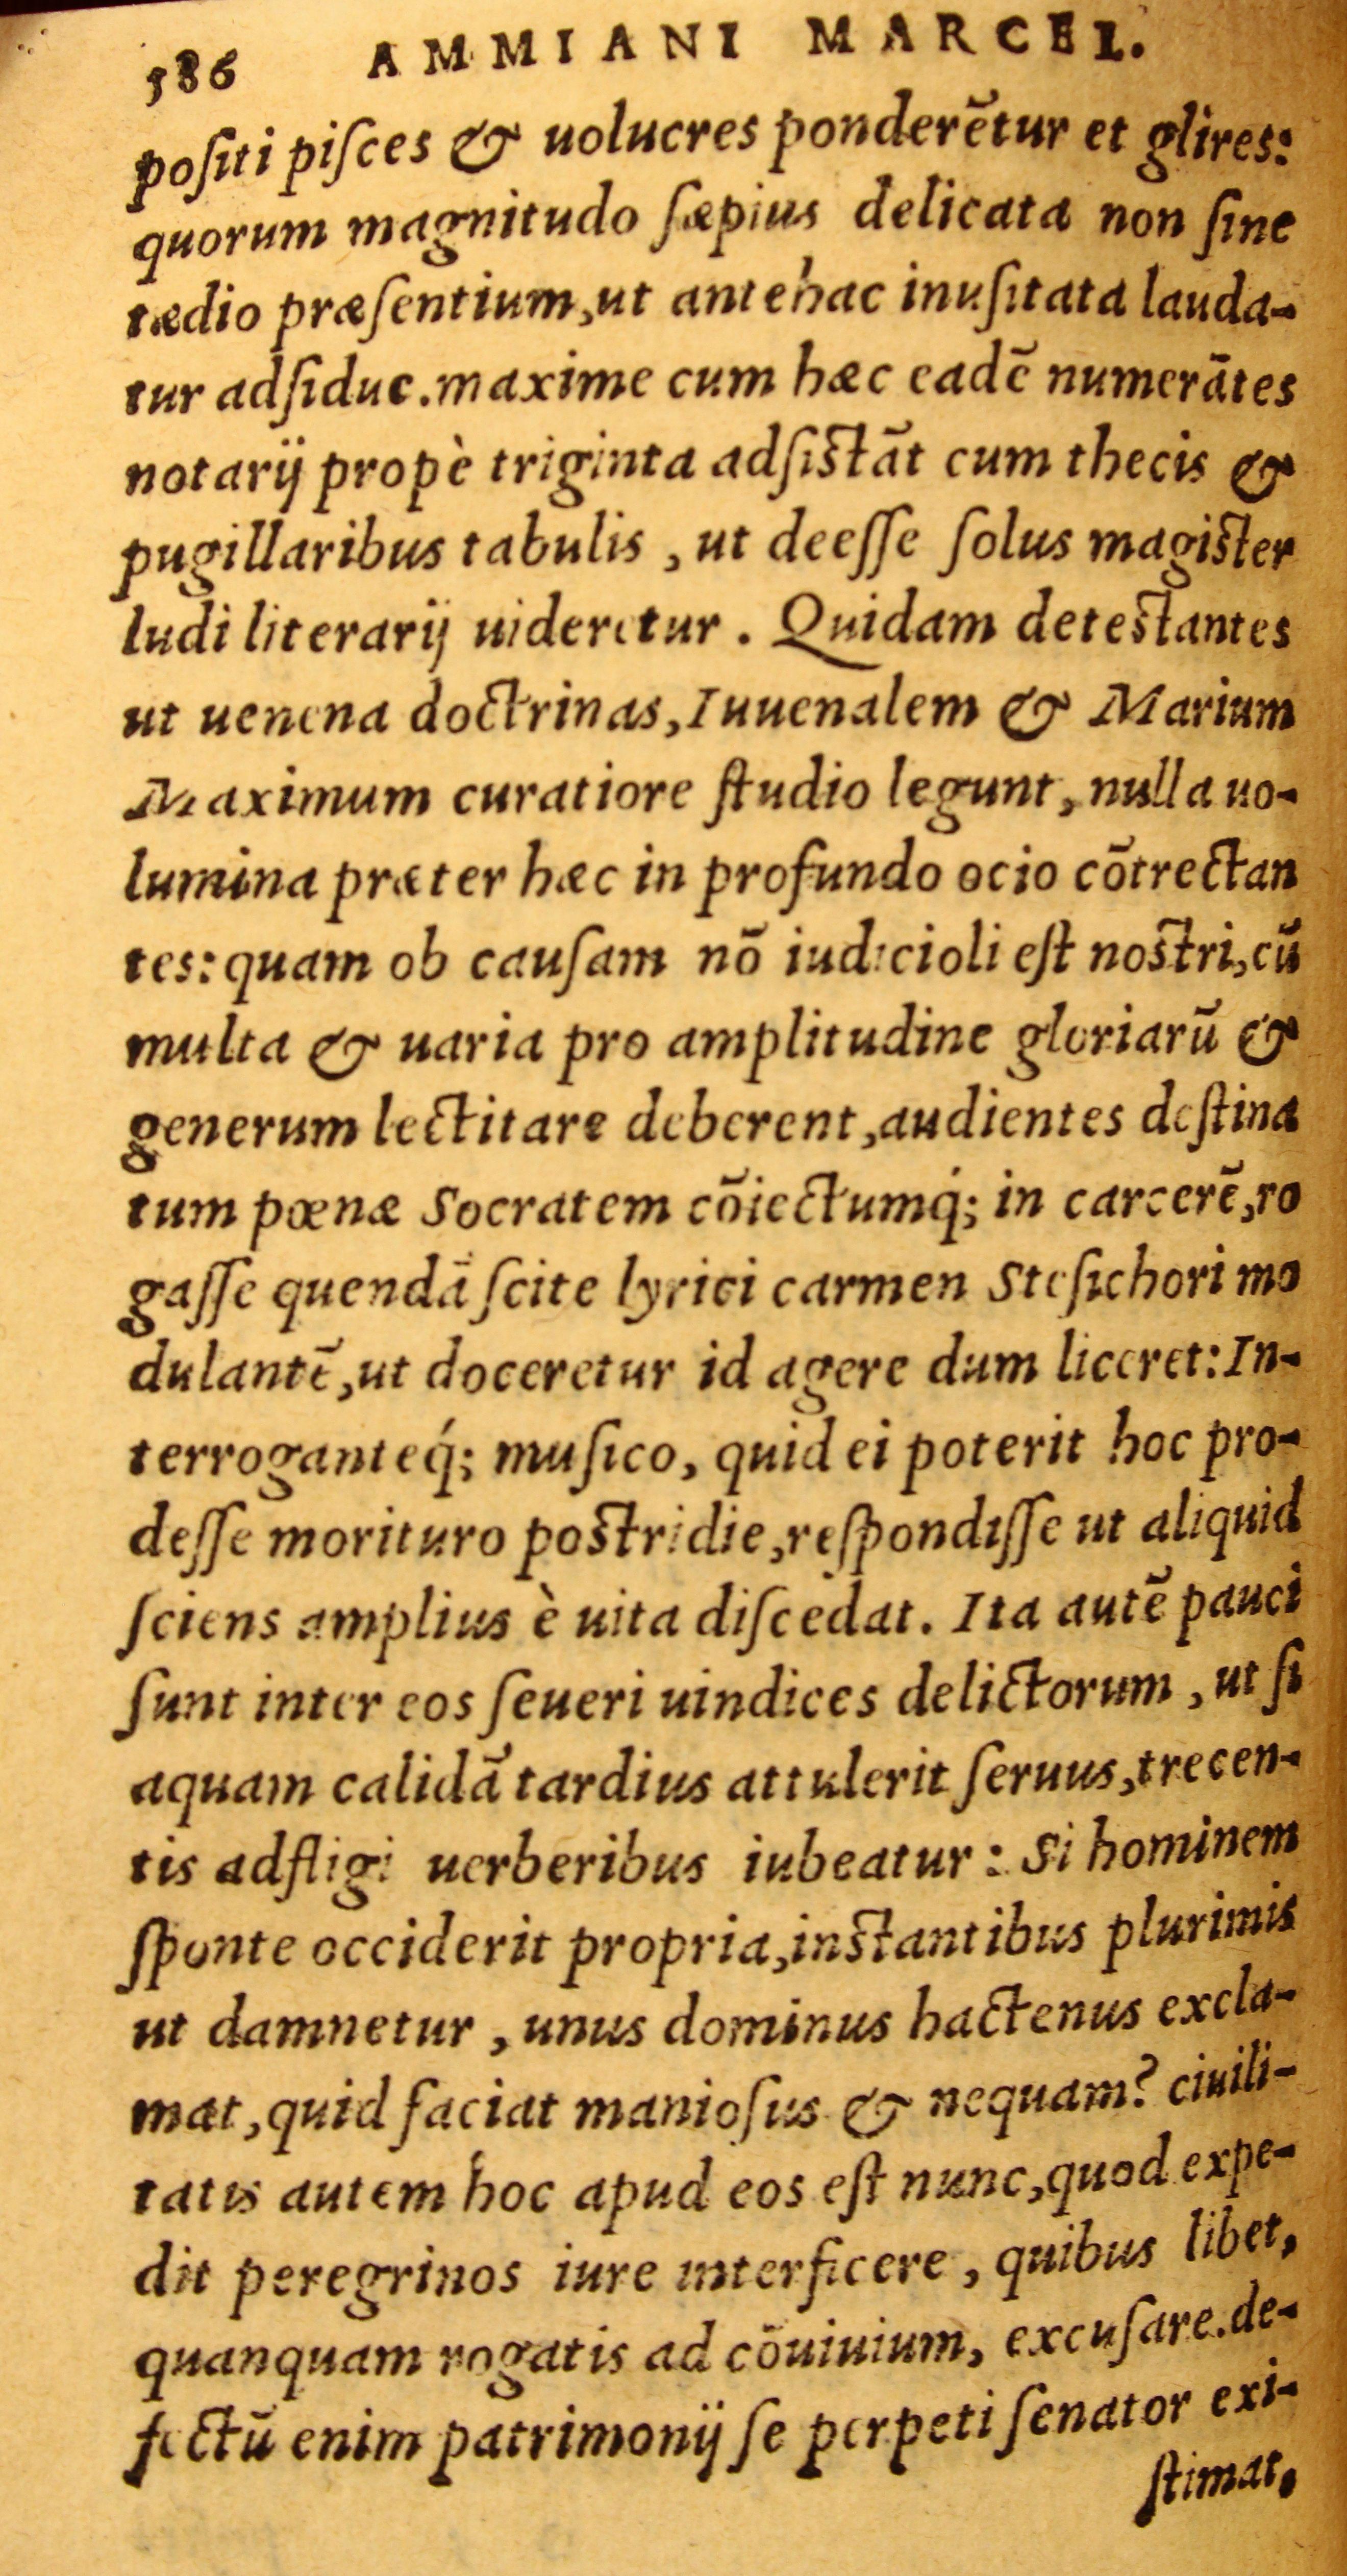 586 AMMIANI MARCEL.
poſiti piſces & uolucres ponderẽtur et glires:
quorum magnitudo ſæpius delicata non ſine
tædio præſentium, ut antehac inuſitata lauda-
tur adſidue. maxime cum hæc eadẽ numerãtes
notarij propè triginta adſiſtãt cum thecis &
pugillaribus tabulis, ut deeſſe ſolus magiſter
ludi literarij uideretur. Quidam deteſtantes
ut uenena doctrinas, Iuuenalem & Marium
Maximum curatiore ſtudio legunt, nulla uo-
lumina præter hæc in profundo ocio cõtrectan
tes: quam ob cauſam nõ iudicioli eſt noſtri, cũ
multa & uaria pro amplitudine gloriarũ &
generum lectitare deberent, audientes deſtina
tum pœnæ Socratem cõiectumq́; in carcerẽ, ro
gaſſe quendã ſcite lyrici carmen Steſichori mo
dulantẽ, ut doceretur id agere dum liceret: In-
terroganteq́; muſico, quid ei poterit hoc pro-
deſſe morituro poſtridie, reſpondiſſe ut aliquid
ſciens amplius è uita diſcedat. Ita autẽ pauci
ſunt inter eos ſeueri uindices delictorum, ut ſi
aquam calidã tardius attulerit ſeruus, trecen-
tis adfligi uerberibus iubeatur: Si hominem
ſponte occiderit propria, inſtantibus plurimis
ut damnetur, unus dominus hactenus excla-
mat, quid faciat manioſus & nequam? ciuili-
tatis autem hoc apud eos eſt nunc, quod expe-
dit peregrinos iure interficere, quibus libet,
quanquam rogatis ad cõuiuium, excuſare. de-
fectũ enim patrimonij ſe perpeti ſenator exi-
ſtimat,